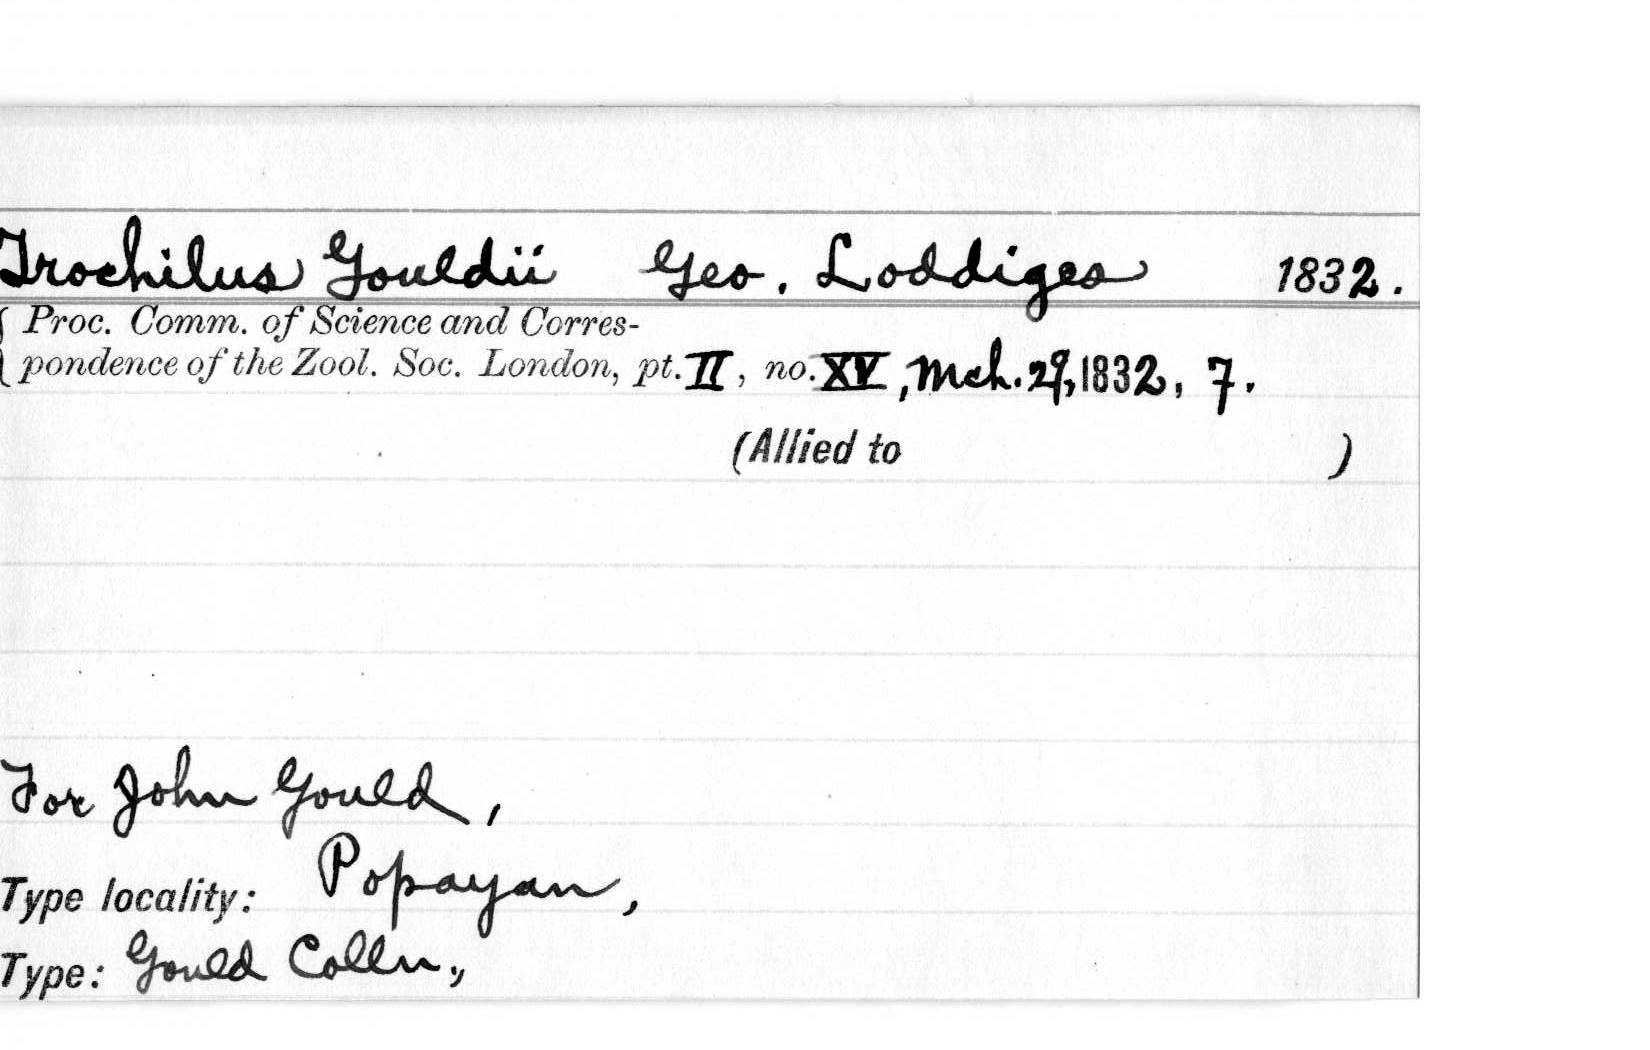 Trochilus Gouldii Geo. Loddiges 1832.
Proc. Comm. of Science and Corres-
pondence of the Zool. Soc. London, pt. II, no. XV, Mch. 29, 1832, 7.
(Allied to )
For John Gould,
Type locality: Popayan,
Type: Gould Colln.,